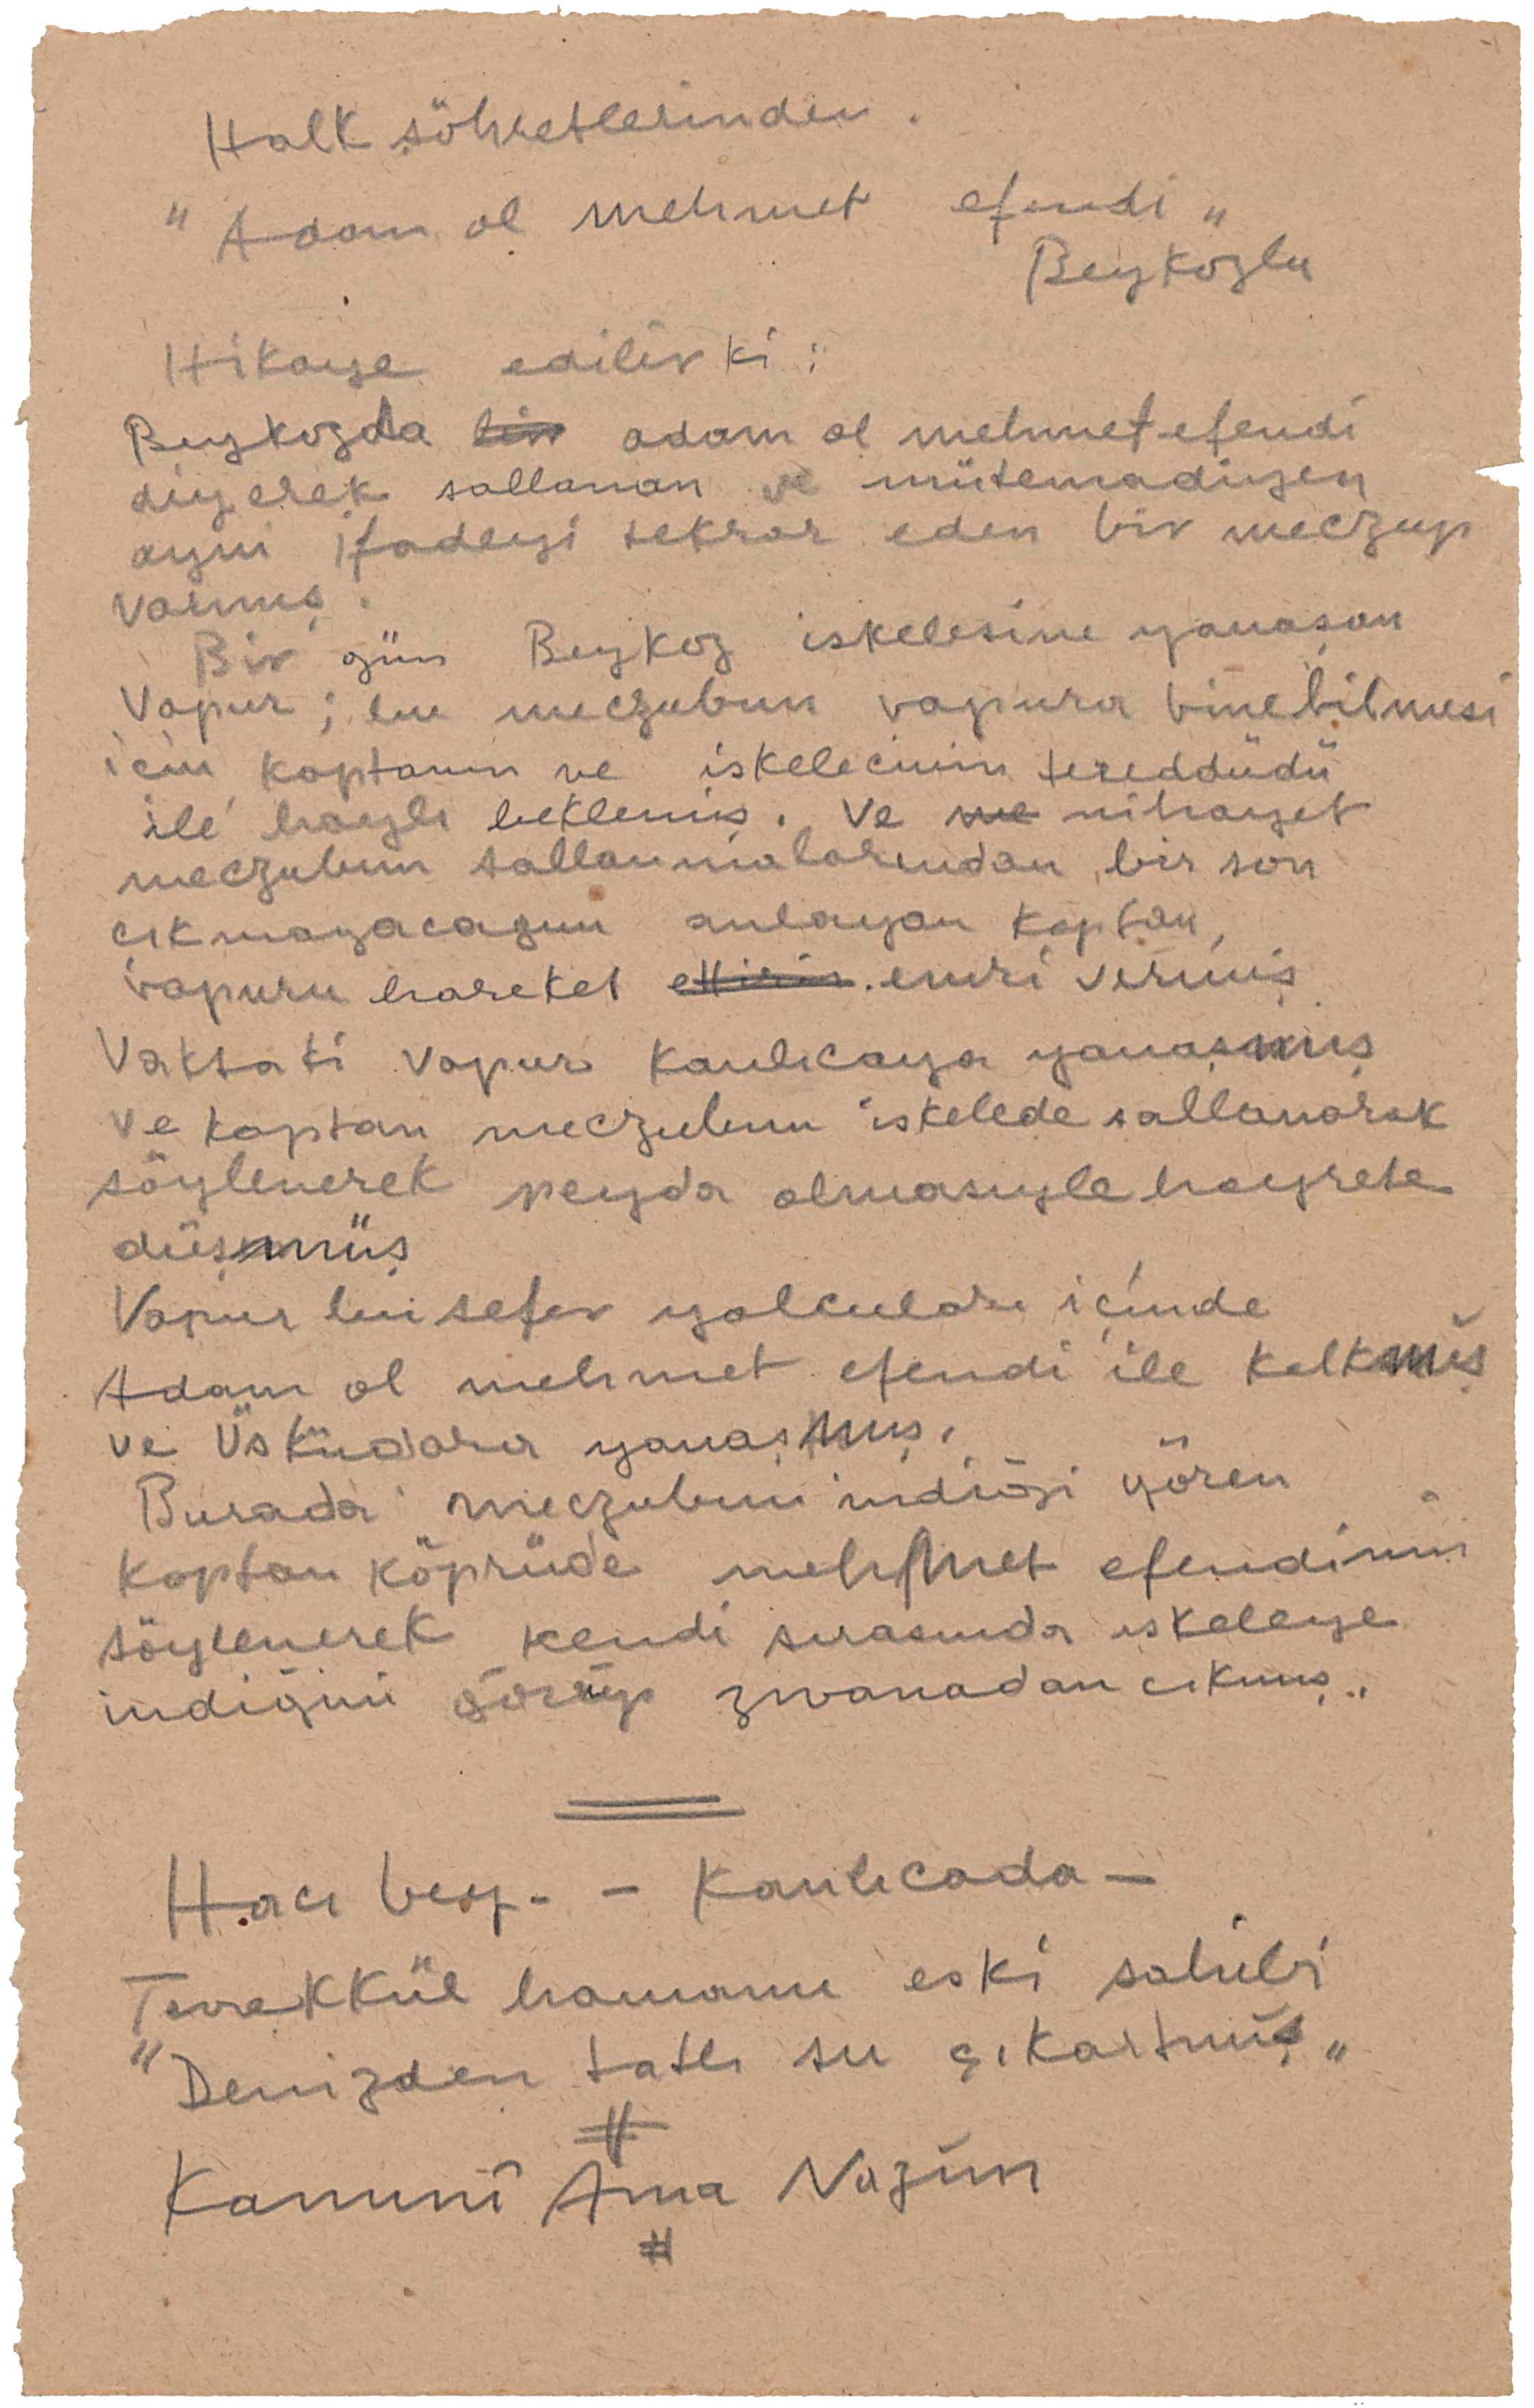 Halk şöhretlerinden.
"Adam ol mehmet efendi"
Beykozlu
Hikaye edilirki:
Beykozda bir adam ol mehmet efendi
diyerek sallanan ve mütemadiyen
ayni ifadeyi tekrar eden bir meczup
varmış.
Bir gün Beykoz iskelesine yanaşan
Vapur; bu meczubun vapura binebilmesi
icin kaptanın ve iskelecinin tereddüdü
ile hayli beklemiş. Ve ne nihayet
meczubun sallanmalarından bir son
cıkmayacagını anlayan kaptan,
vapuru hareket ettiriş. emri vermiş
Vaktaki vapur Kanlıcaya yanaşmış
ve kaptan meczubun iskelede sallanarak
söylenerek peyda olmasıyle hayrete
düşmüş
Vapur bu sefer yolcuları içinde
Adam ol mehmet efendi ile kalkmış
ve Üsküdara yanaşmış.
Burada meczubun indiği gören
kaptan köprüde mehmet efendinin
söylenerek kendi sırasında iskeleye
indiğini görüp zıvanadan cıkmış..
Hacı bey. - Kanlıcada -
Tevekkül hamamı eski sahibi
"Denizden tatlı su çıkartmış"
Kanuni Ama Nazım